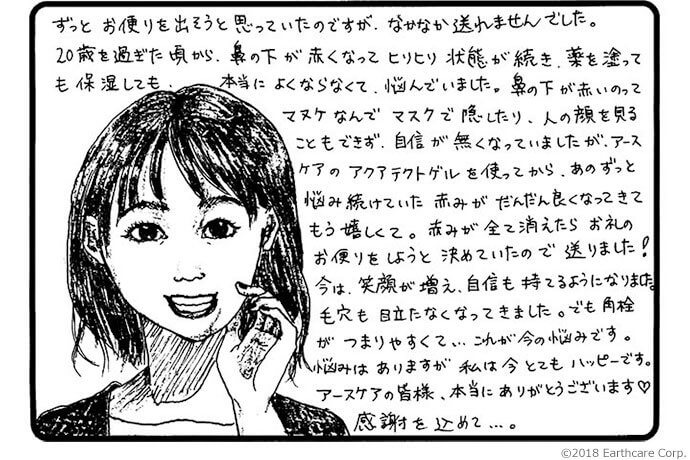 ずっと お便りを出そうと思っていたのですが、なかなか送れませんでした。
20歳を過ぎた頃から、鼻の下が赤くなってヒリヒリ状態が続き、薬を塗って
も保湿しても、本当によくならなくて、悩んでいました。鼻の下が赤いのって
マヌケなんでマスクで隠したり、人の顔を見る
こともできず、自信が無くなっていましたが、アース
ケアのアクアテクトゲルを使ってから、あのずっと
悩み続けていた赤みがだんだん良くなってきて
もう嬉しくて。赤みが全て消えたらお礼の
お便りをしようと決めていたので送りました!
今は、笑顔が増え、自信も持てるようになりました。
毛穴も目立たなくなってきました。でも角栓
がつまりやすくて… これが今の悩みです。
悩みはありますが私は今とてもハッピーです。
アースケアの皆様、本当にありがとうございます♡
感謝を込めて…。
©2018 Earthcare Corp.